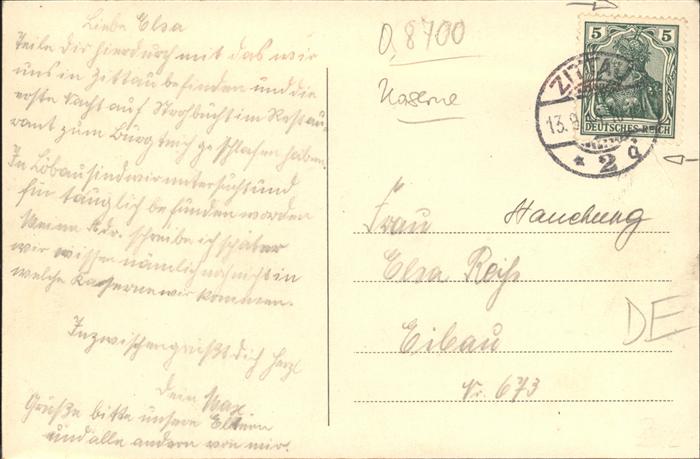 Liebe Elsa
Teile dir hierdurch mit das wir
uns in Zittau befinden und die
erste Nacht auf Strohbucht im Restau-
rant zum Burgteich geschlafen haben.
In Löbau sind wir untersucht und
für tauglich befunden worden
Meine Adr. schreibe ich später
wir wissen nämlich noch nicht in
welche Kaserne wir kommen.
Inzwischen grüßt dich herzl
Dein Max
Grüße bitte unsere Eltern
und alle andern von mir.
0,8700
Kaserne
5 5
DEUTSCHES REICH
ZITTAU
13.9
* 2 q
Frau
Elsa Reiß
Eibau
Nr. 673
DE